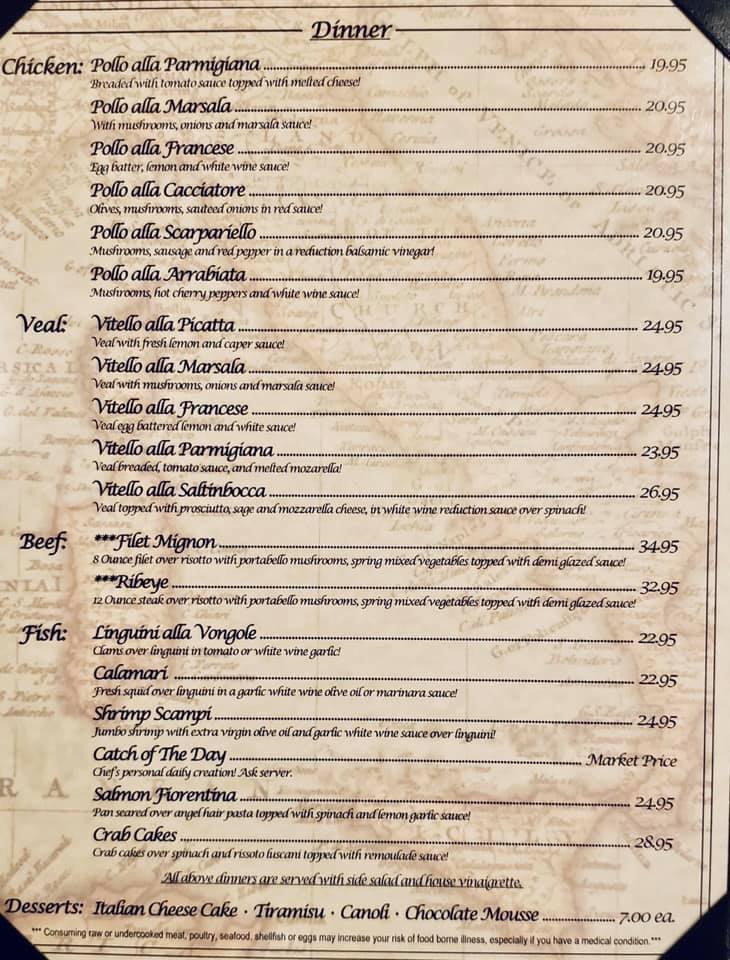 Dinner
Chicken: Pollo alla Parmigiana 19.95
Breaded with tomato sauce topped with melted cheese!
Pollo alla Marsala 20.95
With mushrooms, onions and marsala sauce!
Pollo alla Francese 20.95
Egg batter, lemon and white wine sauce!
Pollo alla Cacciatore 20.95
Olives, mushrooms, sauteed onions in red sauce!
Pollo alla Scarpariello 20.95
Mushrooms, sausage and red pepper in a reduction balsamic vinegar!
Pollo alla Arrabiata 19.95
Mushrooms, hot cherry peppers and white wine sauce!
Veal: Vitello alla Picatta 24.95
Veal with fresh lemon and caper sauce!
Vitello alla Marsala 24.95
Veal with mushrooms, onions and marsala sauce!
Vitello alla Francese 24.95
Veal egg battered lemon and white sauce!
Vitello alla Parmigiana 23.95
Veal breaded, tomato sauce, and melted mozarella!
Vitello alla Saltinbocca 26.95
Veal topped with prosciutto, sage and mozzarella cheese, in white wine reduction sauce over spinach!
Beef: ***Filet Mignon 34.95
8 Ounce filet over risotto with portabello mushrooms, spring mixed vegetables topped with demi glazed sauce!
***Ribeye 32.95
12 Ounce steak over risotto with portabello mushrooms, spring mixed vegetables topped with demi glazed sauce!
Fish: Linguini alla Vongole 22.95
Clams over linguini in tomato or white wine garlic!
Calamari 22.95
Fresh squid over linguini in a garlic white wine olive oil or marinara sauce!
Shrimp Scampi 24.95
Jumbo shrimp with extra virgin olive oil and garlic white wine sauce over linguini!
Catch of The Day Market Price
Chef's personal daily creation! Ask server.
Salmon Fiorentina 24.95
Pan seared over angel hair pasta topped with spinach and lemon garlic sauce!
Crab Cakes 28.95
Crab cakes over spinach and rissoto luscani topped with remoulade sauce!
All above dinners are served with side salad and house vinaigrette.
Desserts: Italian Cheese Cake · Tiramisu · Canoli · Chocolate Mousse 7.00 ea.
*** Consuming raw or undercooked meat, poultry, seafood, shellfish or eggs may increase your risk of food borne illness, especially if you have a medical condition.***